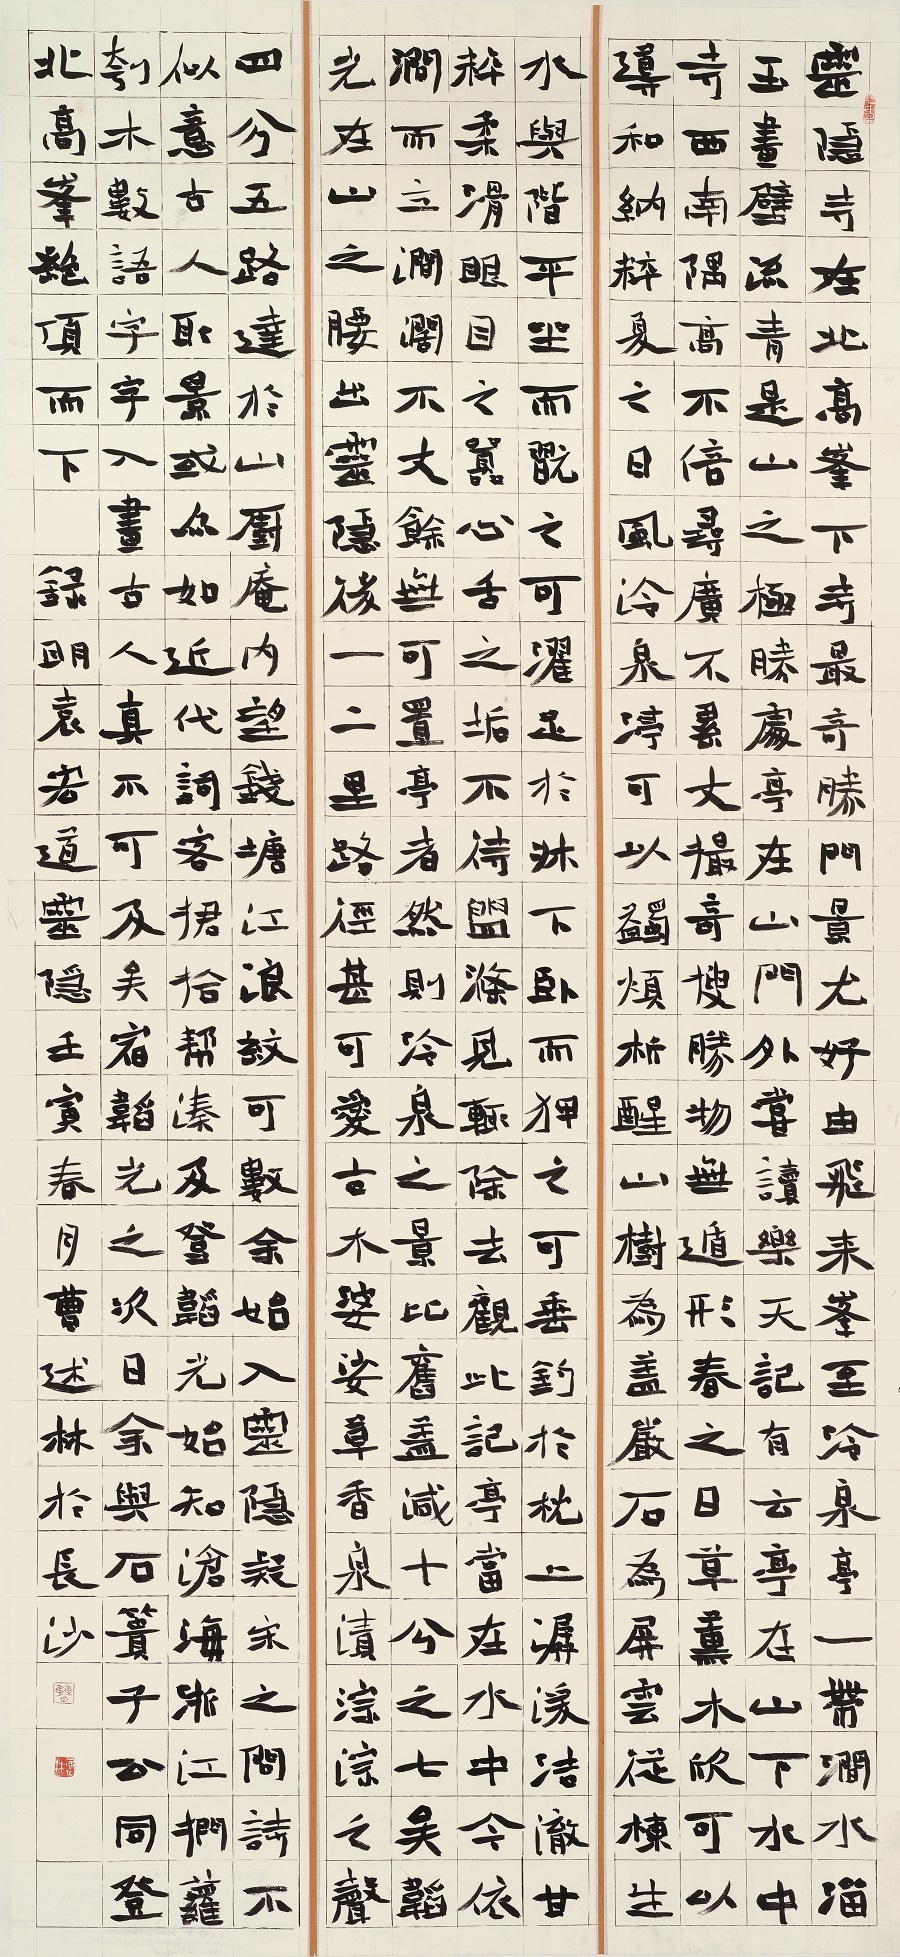 靈隱寺在北高峯下寺最奇勝門景尤好由飛来峯至冷泉亭一帶澗水溜
玉畫壁流青是山之極勝處亭在山門外嘗讀樂天記有云亭在山下水中
寺西南隅高不倍尋廣不累丈撮奇搜勝物無遁形春之日草薰木欣可以
導和納粹夏之日風泠泉渟可以蠲煩析酲山樹為盖巖石為屏雲從棟生
水與階平坐而翫之可濯足於牀下臥而狎之可垂釣於枕上潺湲洁澈甘
粹柔滑眼目之囂心舌之垢不待盥滌見輒除去觀此記亭當在水中今依
澗而立澗闊不丈餘無可置亭者然則冷泉之景比舊盖減十分之七矣韜
光在山之腰出靈隱後一二里路徑甚可愛古木婆娑草香泉漬淙淙之聲
四分五路達於山厨庵内望錢塘江浪紋可數余始入靈隱疑宋之問詩不
似意古人取景或亦如近代詞客捃拾帮湊及登韜光始知滄海浙江捫蘿
刳木數語字字入畫古人真不可及矣宿韜光之次日余與石簣子公同登
北高峯絶頂而下 録明袁宏道靈隱壬寅春月曹述林於長沙